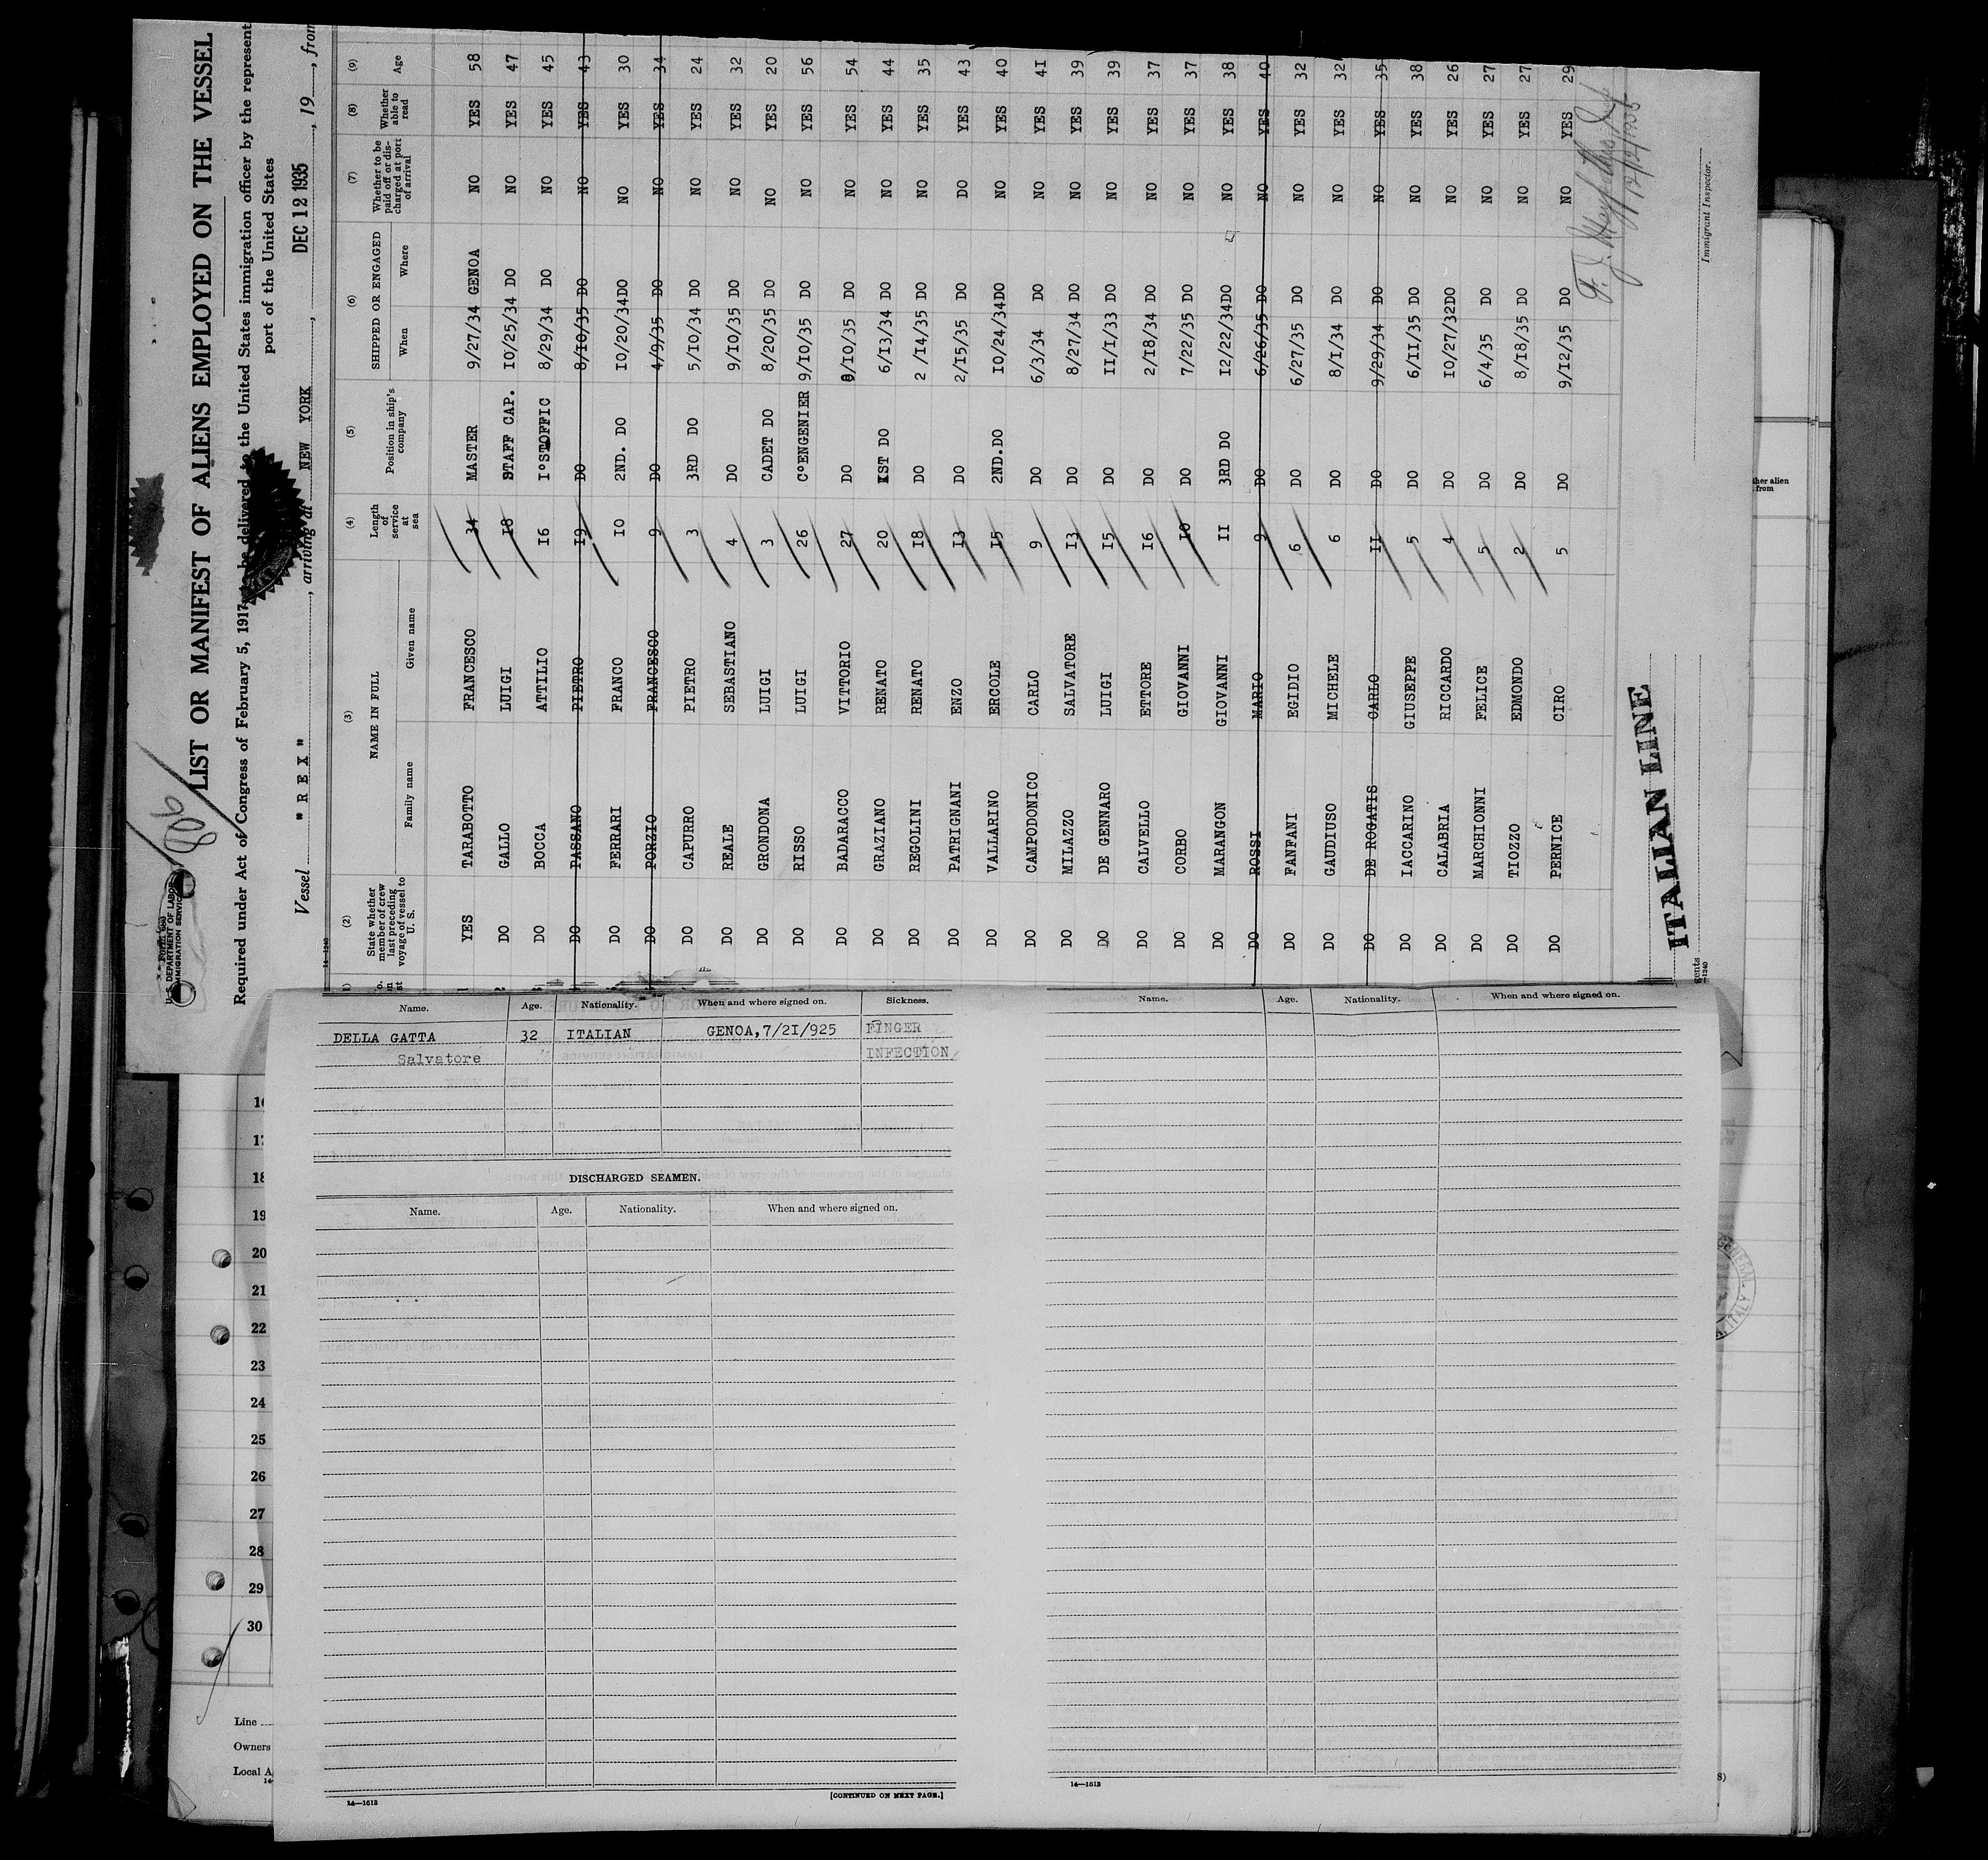 Form 680
U. S. DEPARTMENT OF LABOR
IMMIGRATION SERVICE
LIST OR MANIFEST OF ALIENS EMPLOYED ON THE VESSEL
Required under Act of Congress of February 5, 1917, to be delivered to the United States immigration officer by the represent
port of the United States
Vessel " R E X " , arriving at NEW YORK , DEC 12 1935 , 19 , from
14-1240
(2) (3) (4) (5) (6) (7) (8) (9)
State whether member of crew last preceding voyage of vessel to U. S. NAME IN FULL Length of service at sea Position in ship's company SHIPPED OR ENGAGED Whether to be paid off or discharged at port of arrival Whether able to read Age
Family name Given name When Where
YES TARABOTTO FRANCESCO 34 MASTER 9/27/34 GENOA NO YES 58
DO GALLO LUIGI 18 STAFF CAP. 10/25/34 DO NO YES 47
DO BOCCA ATTILIO 16 I°STOFFIC 8/29/34 DO NO YES 45
DO PASSANO PIETRO 19 DO 8/10/35 DO NO YES 43
DO FERRARI FRANCO 10 2ND. DO 10/20/34 DO NO YES 30
DO PORZIO FRANCESCO 9 DO 4/9/35 DO NO YES 34
DO CAPURRO PIETRO 3 3RD DO 5/10/34 DO NO YES 24
DO REALE SEBASTIANO 4 DO 9/10/35 DO NO YES 32
DO GRONDONA LUIGI 3 CADET DO 8/20/35 DO NO YES 20
DO RISSO LUIGI 26 C°ENGENIER 9/10/35 DO NO YES 56
DO BADARACCO VITTORIO 27 DO 8/10/35 DO NO YES 54
DO GRAZIANO RENATO 20 1ST DO 6/13/34 DO NO YES 44
DO REGOLINI RENATO 18 DO 2 /14/35 DO NO YES 35
DO PATRIGNANI ENZO 13 DO 2/15/35 DO DO YES 43
DO VALLARINO ERCOLE 15 2ND.DO 10/24/34 DO NO YES 40
DO CAMPODONICO CARLO 9 DO 6/3/34 DO NO YES 41
DO MILAZZO SALVATORE 13 DO 8/27/34 DO NO YES 39
DO DE GENNARO LUIGI 15 DO 11/1/33 DO NO YES 39
DO CALVELLO ETTORE 16 DO 2/18/34 DO NO YES 37
DO CORBO GIOVANNI 10 DO 7/22/35 DO NO YES 37
DO MARANGON GIOVANNI 11 3RD DO 12/22/34 DO NO YES 38
DO ROSSI MARIO 9 DO 6/26/35 DO NO YES 40
DO FANFANI EGIDIO 6 DO 6/27/35 DO NO YES 32
DO GAUDIUSO MICHELE 6 DO 8/1/34 DO NO YES 32
DO DE ROGATIS CARLO 11 DO 9/29/34 DO NO YES 35
DO IACCARINO GIUSEPPE 5 DO 6/11/35 DO NO YES 38
DO CALABRIA RICCARDO 4 DO 10/27/32 DO NO YES 26
DO MARCHIONNI FELICE 5 DO 6/4/35 DO NO YES 27
DO TIOZZO EDMONDO 2 DO 8/18/35 DO NO YES 27
DO PERNICE CIRO 5 DO 9/12/35 DO NO YES 29
ITALIAN LINE
Immigrant Inspector.
gents
-1240
Name. Age. Nationality. When and where signed on. Sickness.
DELLA GATTA 32 ITALIAN GENOA,7/21/925 FINGER
Salvatore INFECTION
DISCHARGED SEAMEN.
Name. Age. Nationality. When and where signed on.
14—1613
[CONTINUED ON NEXT PAGE.]
Name. Age. Nationality. When and where signed on.
14—1613
18
19
20
21
22
23
24
25
26
27
28
29
30
Line
Owners
Local A
ther alien
from
8)